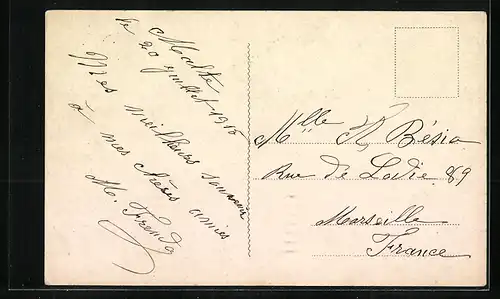 Malte
le 20 juillet 1915
Mes meilleurs souvenir
à mes chères amies
M. Frendo
Mlle R. Bésia
Rue de Lodie 89
Marseille
France